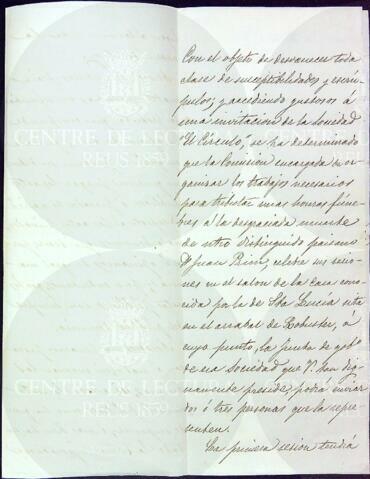 Con el objeto de desvanecer toda
clase de suceptibilidades y escrú-
pulos; y accediendo gustosos á
una invitacion de la Sociedad
"El Círculo", se ha determinado
que la Comision encargada de or-
ganizar los trabajos necesarios
para tributar unas honras fúne-
bres á la desgraciada muerte
de ntro distinguido paisano
Dn Juan Prim, celebre sus sesio-
nes en el salon de la Casa cono-
cida por la de Sta Lucia sita
en el arrabal de Robuster, á
cuyo punto, la Junta de gobo
de esa Sociedad que V. tan dig-
namente preside, podrá enviar
dos ó tres personas que la repre-
senten.
La primera sesion tendrá
CENTRE DE LECTURA
REUS 1859
CENTRE DE LECTURA
REUS 1859